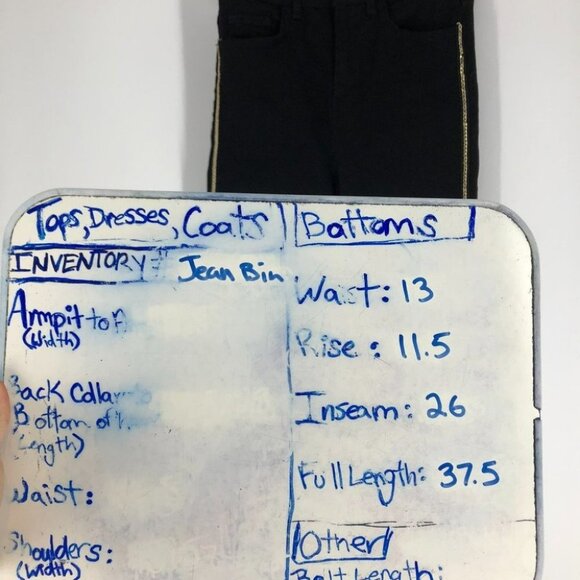 Tops, Dresses, Coats
INVENTORY # Jean Bin
Armpit to
(Width)
Back Collar to
Bottom of
Length)
Waist:
Shoulders:
(Width)
Bottoms
Waist: 13
Rise: 11.5
Inseam: 26
Full Length: 37.5
Other
Belt Length: